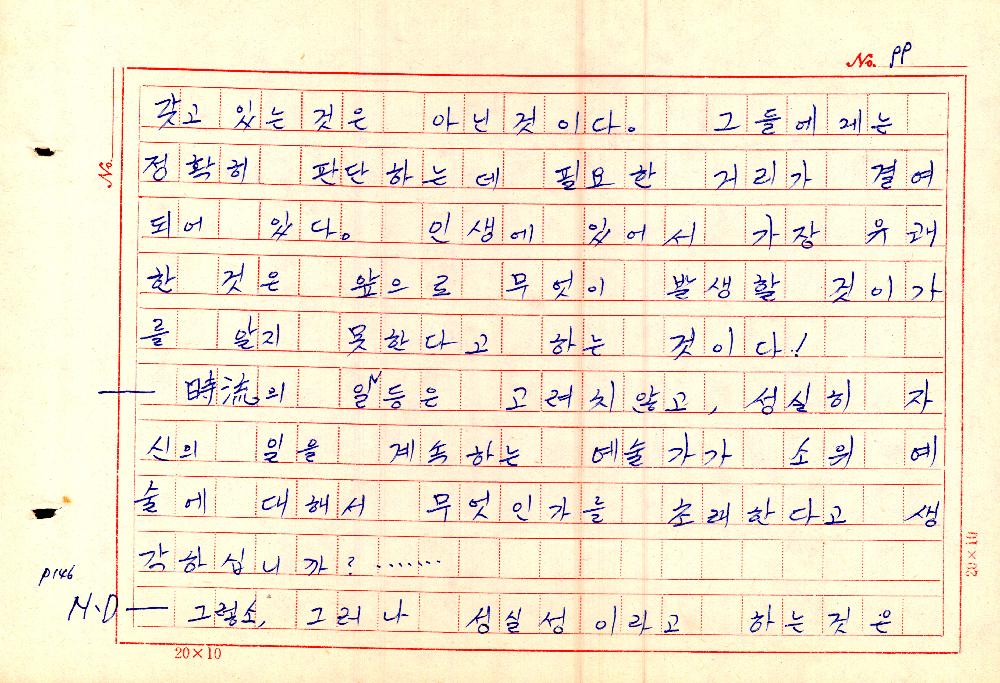 No. 99
No.
갖고 있는 것은 아닌것이다. 그들에게는
정확히 판단하는데 필요한 거리가 결여
되어 있다. 인생에 있어서 가장 유쾌
한 것은 앞으로 무엇이 발생할 것이가
를 알지 못한다고 하는 것이다!
— 時流의 일등은 고려치않고, 성실히 자
신의 일을 계속하는 예술가가 소위 예
술에 대해서 무엇인가를 초래한다고 생
각하십니까?……
P146
M.D — 그렇소, 그러나 성실성이라고 하는것은
20×10
20×10